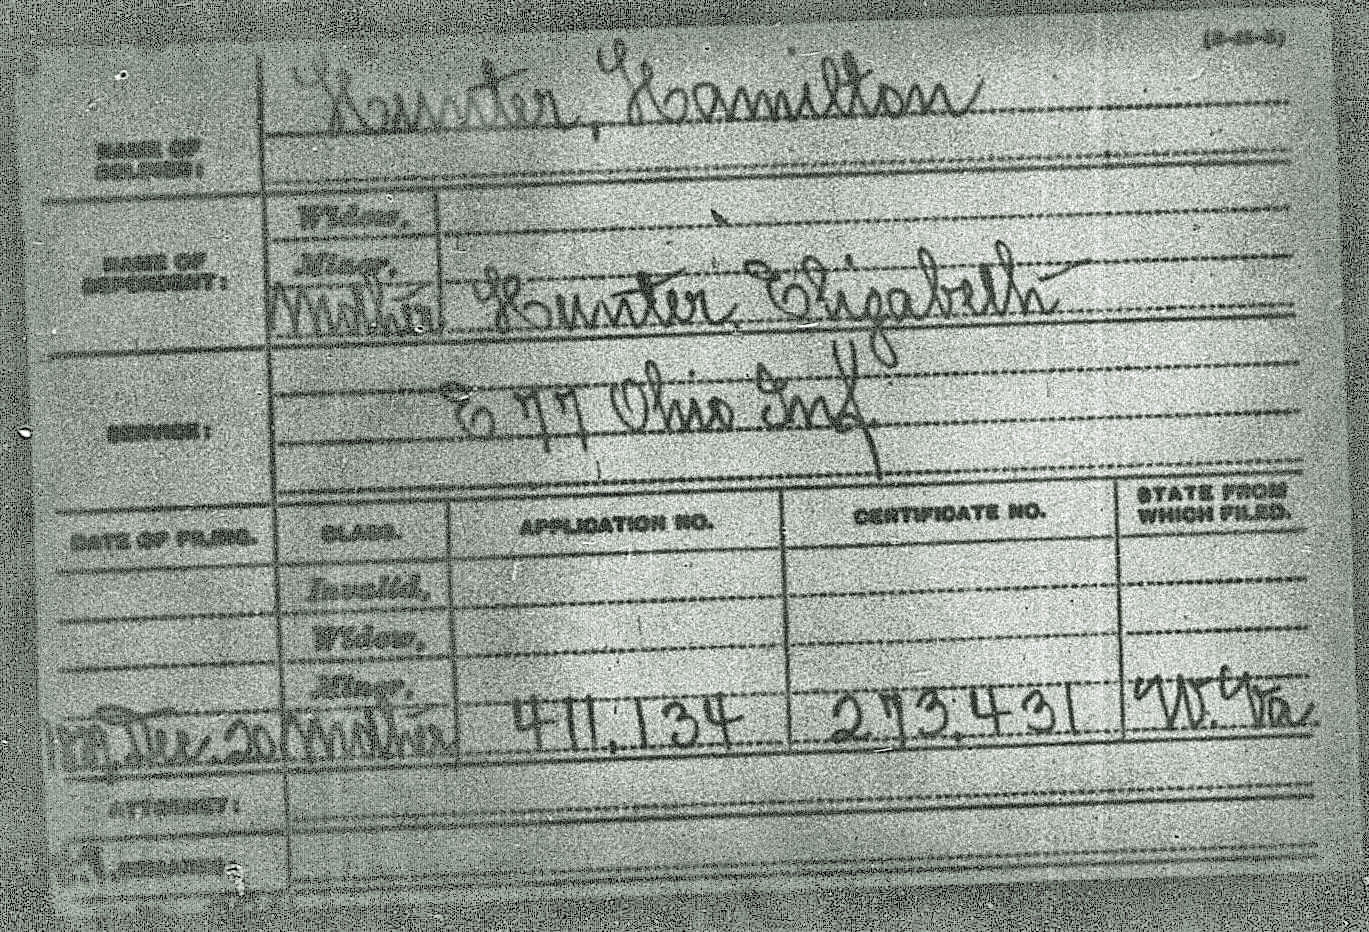 (3-45-3)
Hunter, Hamilton
NAME OF
SOLDIER:
Widow,
NAME OF
DEPENDENT:
Minor,
Mother Hunter, Elizabeth
SERVICE:
E 77 Ohio Inf
DATE OF FILING. CLASS. APPLICATION NO. CERTIFICATE NO. STATE FROM
WHICH FILED.
Invalid,
Widow,
Minor,
Dec. 20 Mother 411,134 273,431 W. Va.
ATTORNEY: